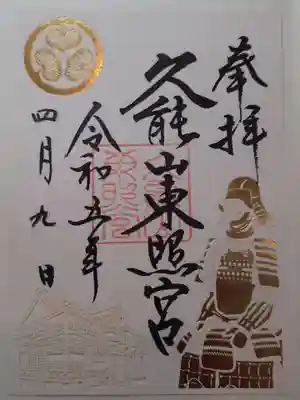 奉拝
久能山東照宮
令和五年
四月九日